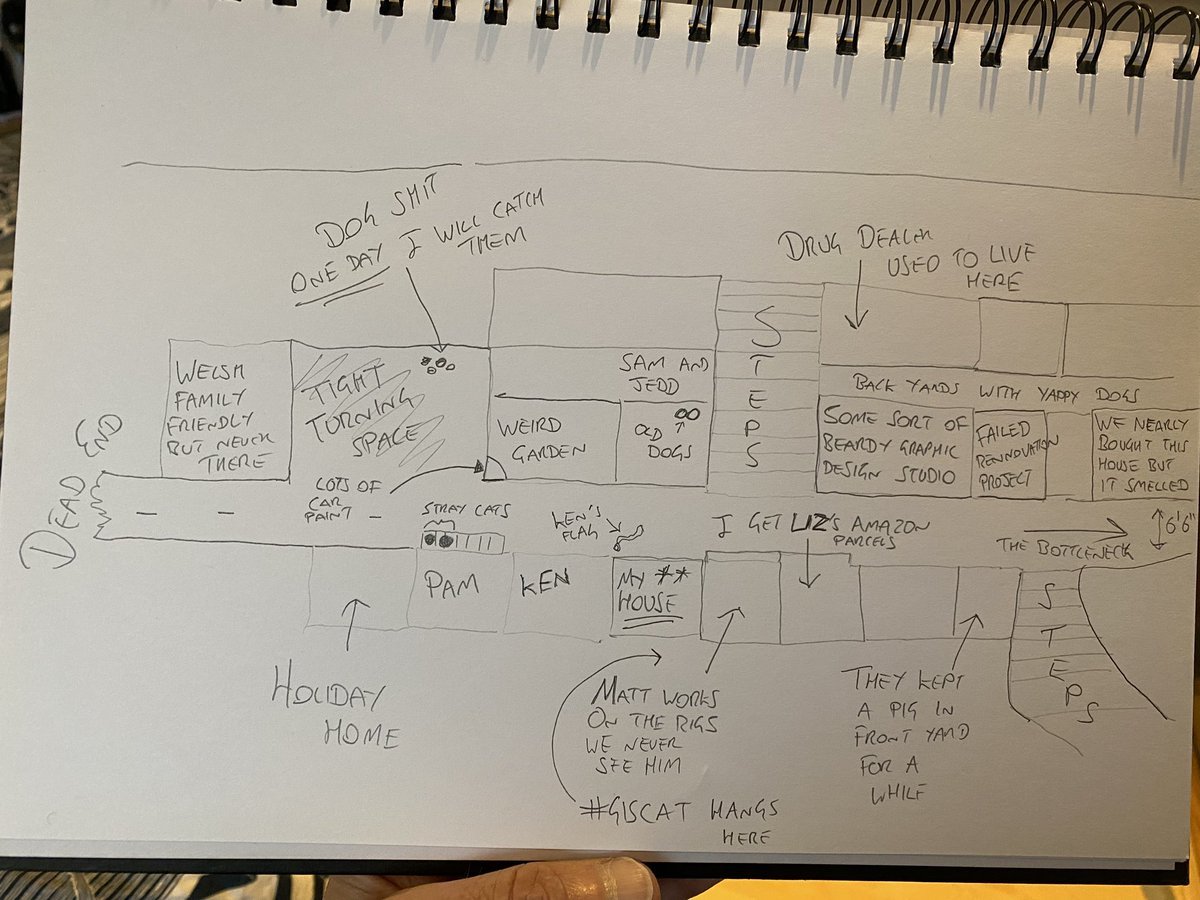 DOG SHIT
ONE DAY I WILL CATCH
THEM
DRUG DEALER
USED TO LIVE
HERE
WELSH
FAMILY
FRIENDLY
BUT NEVER
THERE
TIGHT
TURNING
SPACE
SAM AND
JEDD
OLD
DOGS
WEIRD
GARDEN
STEPS
BACK YARDS WITH YAPPY DOGS
SOME SORT OF
BEARDY GRAPHIC
DESIGN STUDIO
FAILED
RENNOVATION
PROJECT
WE NEARLY
BOUGHT THIS
HOUSE BUT
IT SMELLED
DEAD END
LOTS OF
CAR
PAINT
STRAY CATS
KEN'S
FLAG
I GET LIZ'S AMAZON
PARCELS
THE BOTTLENECK
6'6"
PAM
KEN
MY **
HOUSE
STEPS
HOLIDAY
HOME
MATT WORKS
ON THE RIGS
WE NEVER
SEE HIM
THEY KEPT
A PIG IN
FRONT YARD
FOR A
WHILE
#GISCAT HANGS
HERE